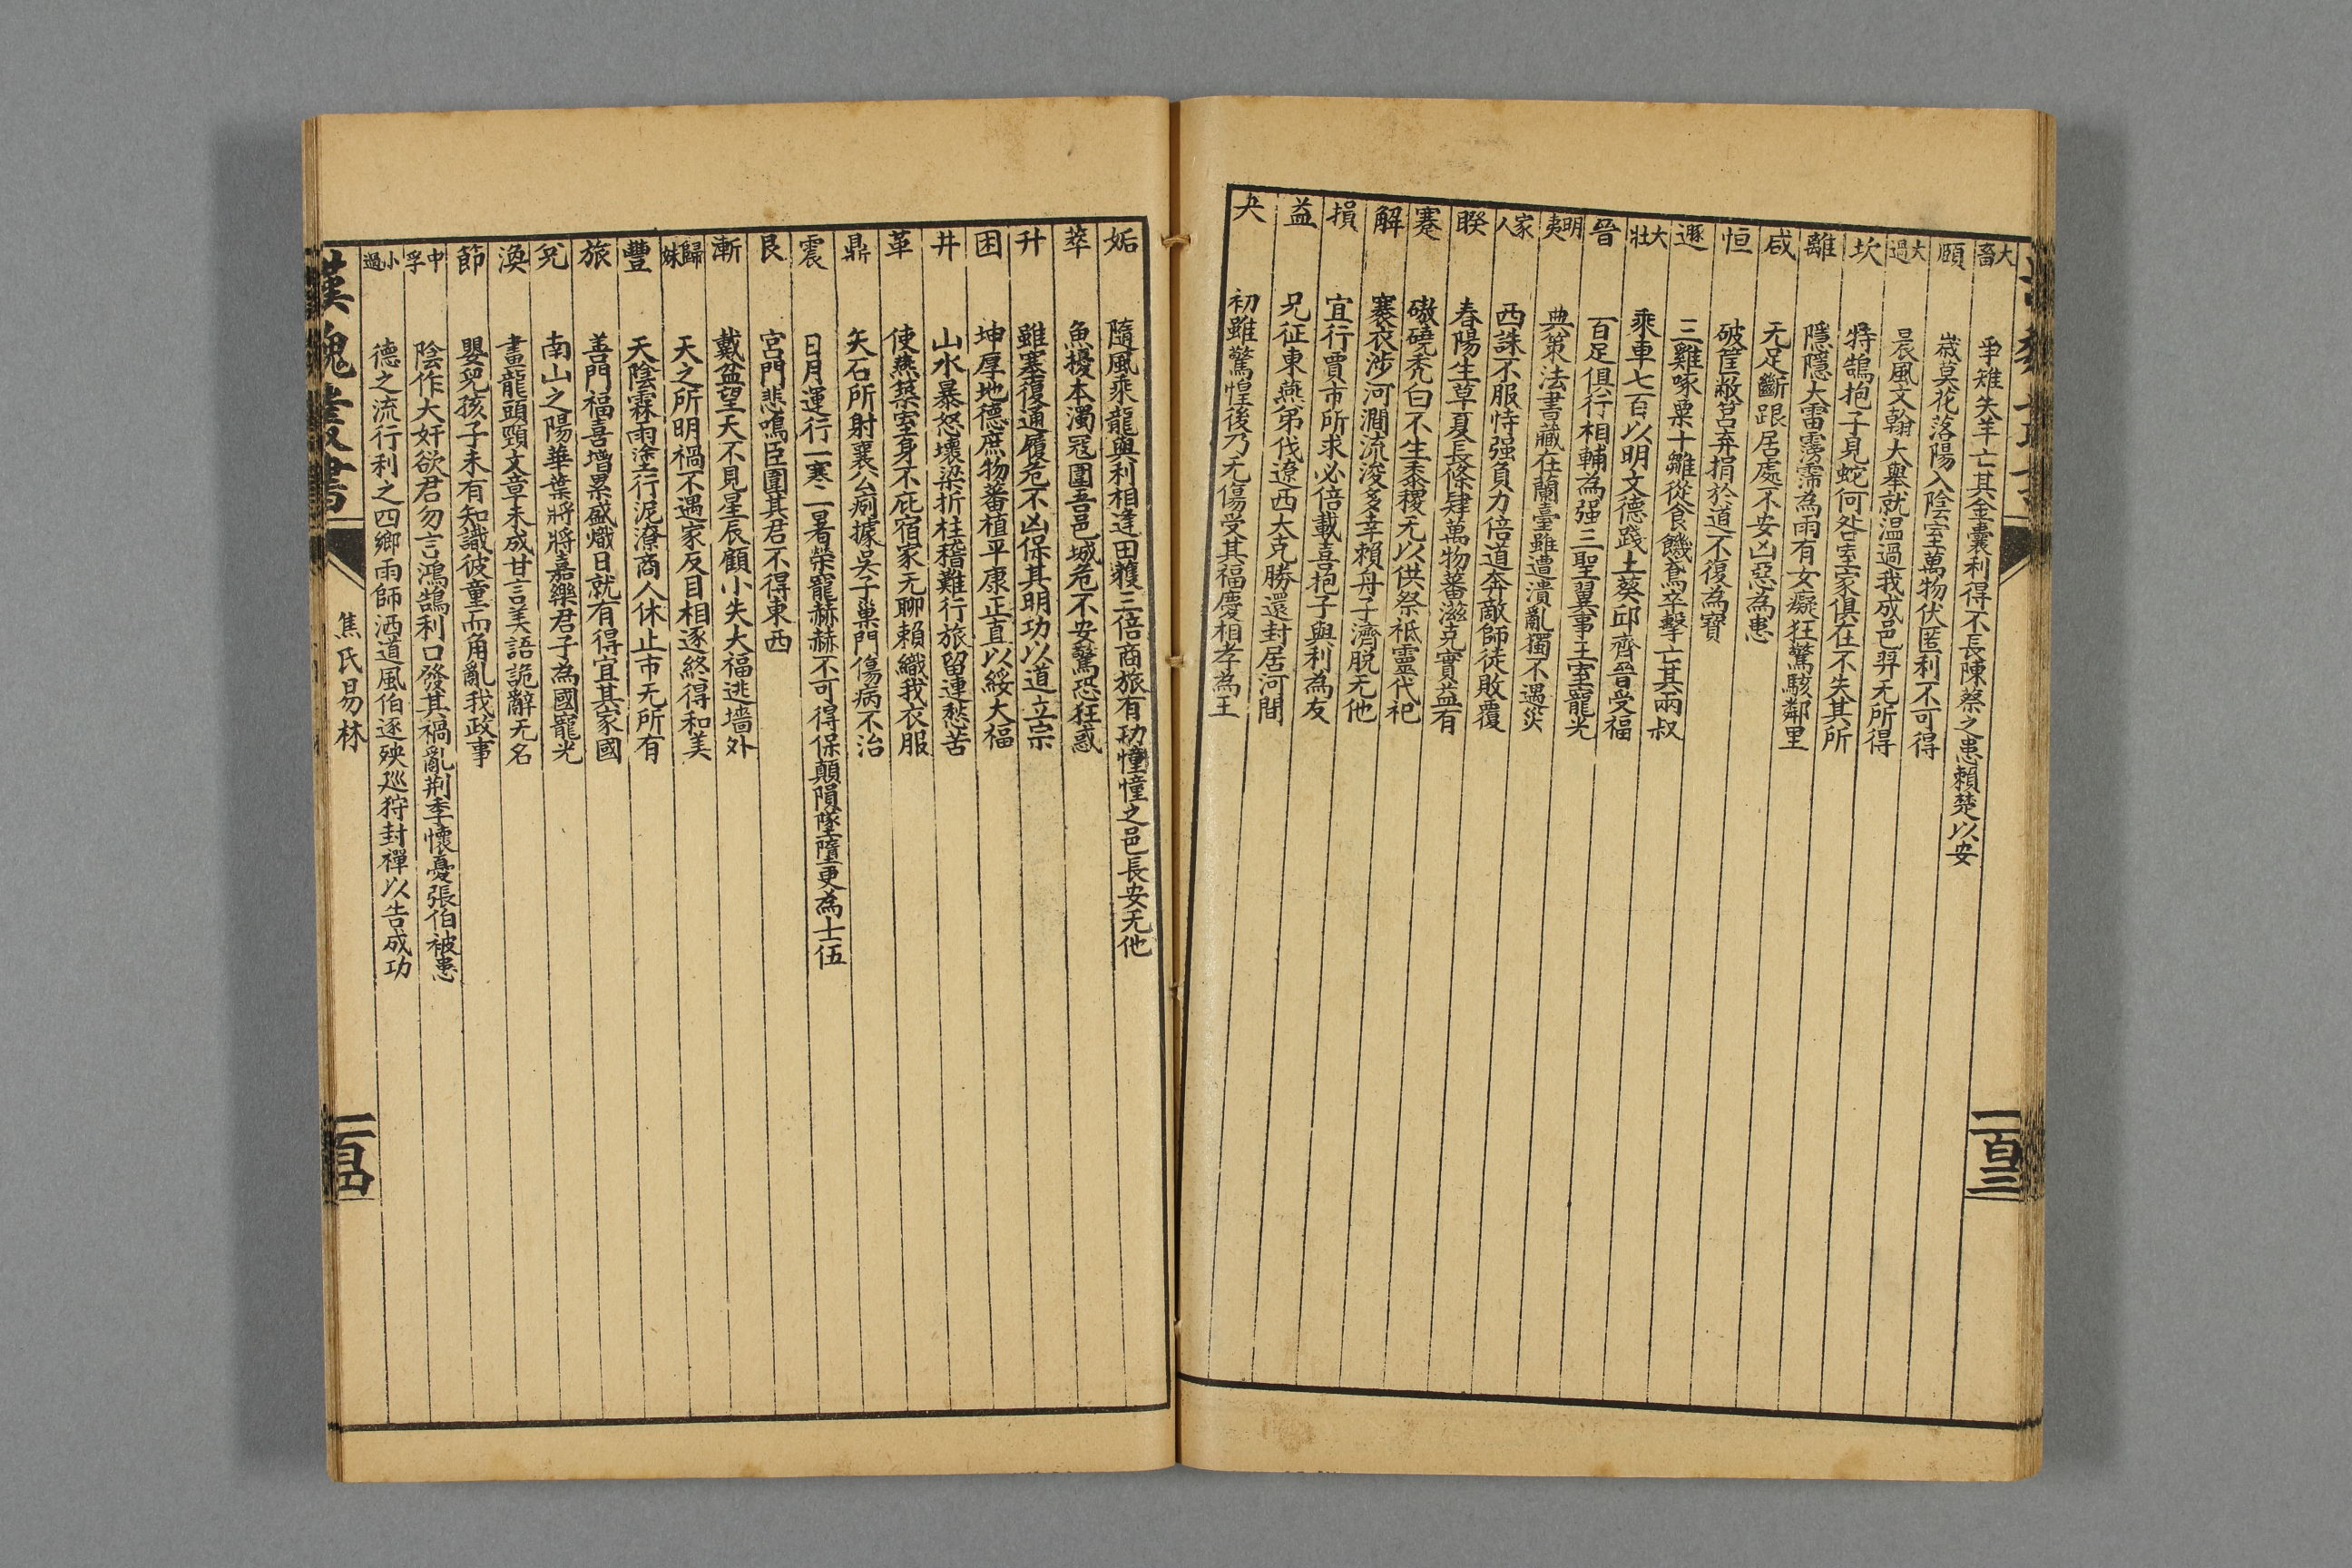 大畜 爭雉失羊亡其金囊利得不長陳蔡之患賴楚以安
頤 歲莫花落陽入陰室萬物伏匿利不可得
大過 晨風文翰大舉就溫過我成邑羿无所得
坎 特鵠抱子見蛇何咎室家俱在不失其所
離 隱隱大雷霶霈為雨有女癡狂驚駭鄰里
咸 无足斷跟居處不安凶惡為患
恒 破筐敝筥弃捐於道不復為寶
遯 三雞啄粟十雛從食饑鳶卒擊亡其兩叔
大壯 乘車七百以明文德踐土葵邱齊晉受福
晉 百足俱行相輔為强三聖翼事王室寵光
明夷 典策法書藏在蘭臺雖遭潰亂獨不遇災
家人 西誅不服恃强負力倍道奔敵師徒敗覆
睽 春陽生草夏長條肆萬物蕃滋克實益有
蹇 磝磽禿白不生黍稷无以供祭祗靈代祀
解 褰衣涉河澗流浚多幸賴舟子濟脱无他
損 宜行賈市所求必倍載喜抱子與利為友
益 兄征東燕弟伐遼西大克勝還封居河間
夬 初雖驚惶後乃无傷受其福慶相孝為王
一百三
姤 隨風乘龍與利相逢田獲三倍商旅有功憧憧之邑長安无他
萃 魚擾本濁冦圍吾邑城危不安驚恐狂惑
升 雖塞復通履危不凶保其明功以道立宗
困 坤厚地德庶物蕃植平康正直以綏大福
井 山水暴怒壞梁折柱稽難行旅留連愁苦
革 使燕築室身不庇宿家无聊賴織我衣服
鼎 矢石所射襄公痾據吳子巢門傷病不治
震 日月運行一寒二暑榮寵赫赫不可得保顛隕墜墮更為士伍
艮 宮門悲鳴臣圍其君不得東西
漸 戴盆望天不見星辰顧小失大福逃墻外
歸妹 天之所明禍不遇家反目相逐終得和美
豐 天陰霖雨塗行泥潦商人休止市无所有
旅 善門福喜增累盛熾日就有得宜其家國
兌 南山之陽華葉將將嘉樂君子為國寵光
渙 畫龍頭頸文章未成甘言美語詭辭无名
節 嬰兒孩子未有知識彼童而角亂我政事
中孚 陰作大奸欲君勿言鴻鵠利口發其禍亂荆季懷憂張伯被患
小過 德之流行利之四鄉雨師洒道風伯逐殃巡狩封禪以告成功
漢魏叢書
焦氏易林
一百四